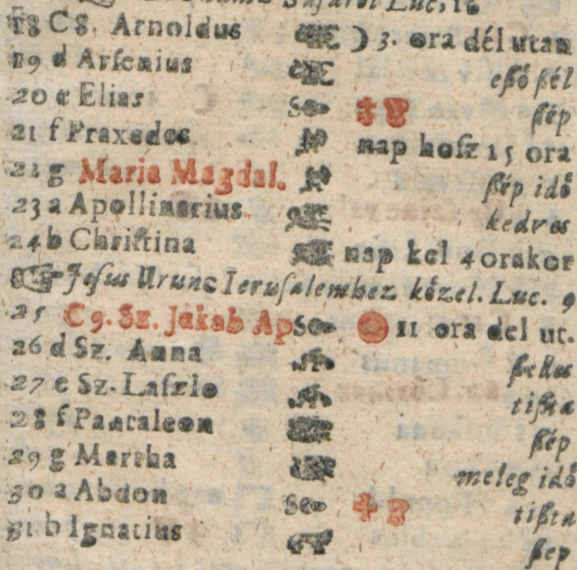 Luc, 16
18 C8. Arnoldus ☽ 3. ora dél utan
19 d Arsenius eſſő ßél
20 e Elias ßép
21 f Praxedes nap hoſz 15 ora
22 g Maria Magdal. ßép idő
23 a Apollinarius kedves
24 b Chriſtina nap kel 4 orakor
Jeſus Urunc Ieruſalemhez közel. Luc. 9
25 C 9. Sz. Jakab Ap 11 ora del ut.
26 d Sz. Anna
27 e Sz. Laſzlo tißta
28 f Pantaleon ßép
29 g Martha meleg idő
30 a Abdon tißta
31 b Ignatius ßep